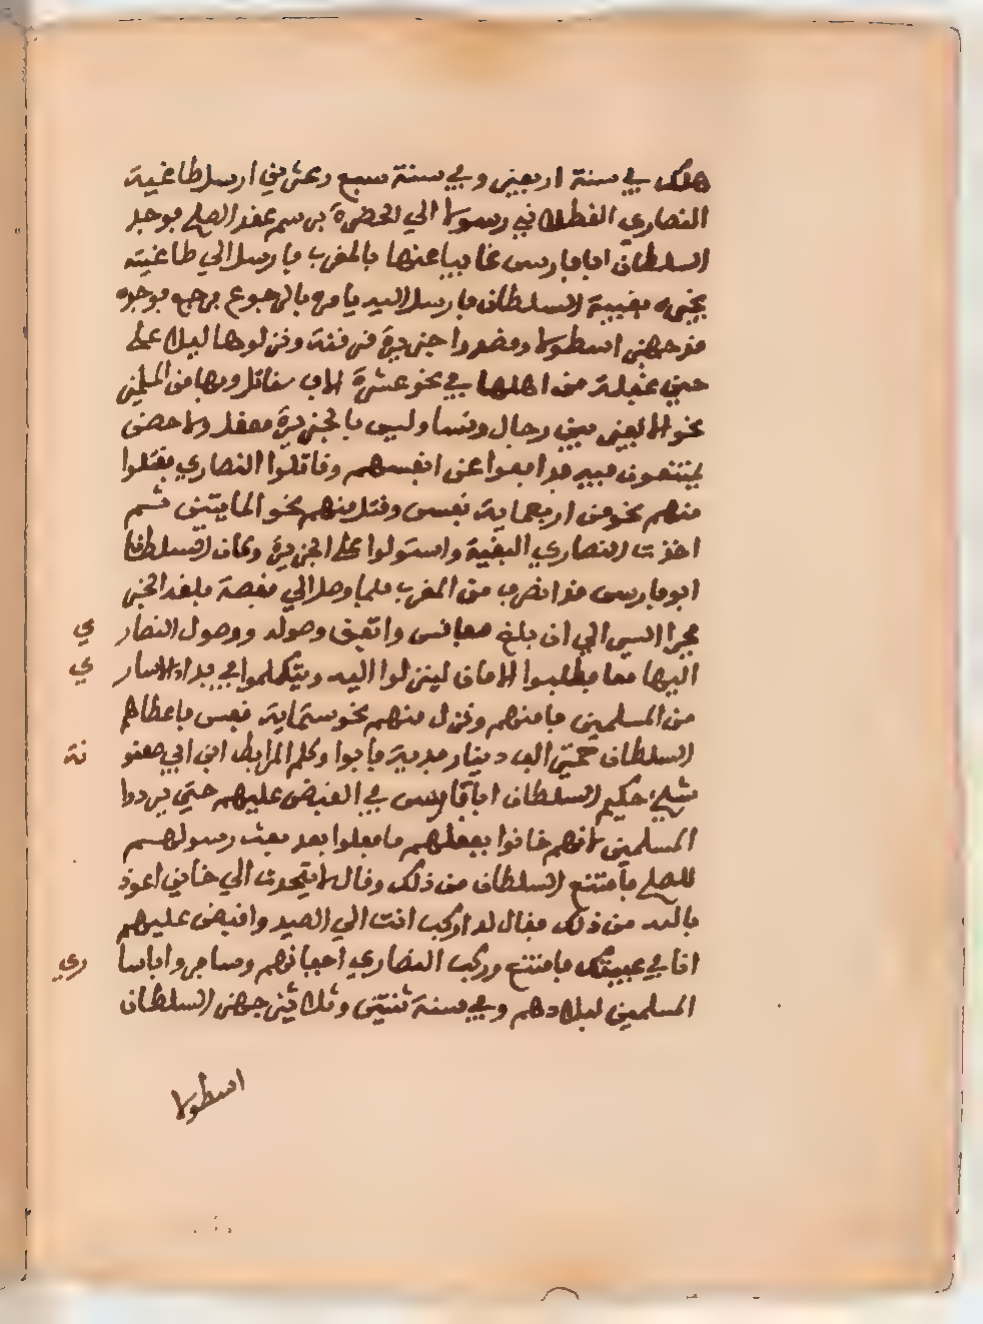 هلك في سنة اربعين وفي سنة سبع وعشرين ارسل طاغية
النصاري القطلاني رسولا الي الحضرة برسم عقد الصلح فوجد
السلطان ابا فارس غايبا عنها بالمغرب فارسل الي طاغيته
يخبره بغيبة السلطان فارسل اليه يامره بالرجوع فرجع فوجده
قد جهز اسطولا وقصدوا جزيرة قرقنة ونزلوها ليلا علي
حين غفلة من اهلها في نحو عشرة الاف مقاتل وبها من المسلمين
نحو الالفين بين رجال ونسا وليس بالجزيرة معقل ولا حصن
يمتنعون فيه فدافعوا عن انفسهم وقاتلوا النصاري فقتلوا
منهم نحو من اربعماية نفس وقتل منهم نحو المايتين ثم
اخذت النصاري البقية واستولوا علي الجزيرة وكان السلطان
ابو فارس قد انصرف من المغرب فلما وصل الي قفصة بلغه الخبر
فجرا السير الي ان بلغ صفاقس واتفق وصوله ووصول النصاري
اليها معا فطلبوا الامان لينزلوا اليه ويتكلموا في فداء الاساري
من المسلمين فامنهم ونزل منهم نحو ستماية نفس فاعطاهم
السلطان خمسين الف دينار فدية فابوا وكلم المرابط ابن ابي صعنونة
شيخ حكيم السلطان ابا فارس في القبض عليهم حتي يردوا
المسلمين لانهم خانوا بفعلهم ما فعلوا بعد بعث رسولهم
للصلح فامتنع السلطان من ذلك وقال لا يتحدث الي خاين اعوذ
بالله من ذلك فقال له اركب انت الي الصيد واقبض عليهم
انا في غيبتك فامتنع وركب النصاري اجفانهم وسافروا باساري
المسلمين لبلادهم وفي سنة ثنتين وثلاثين جهز السلطان
اسطولا